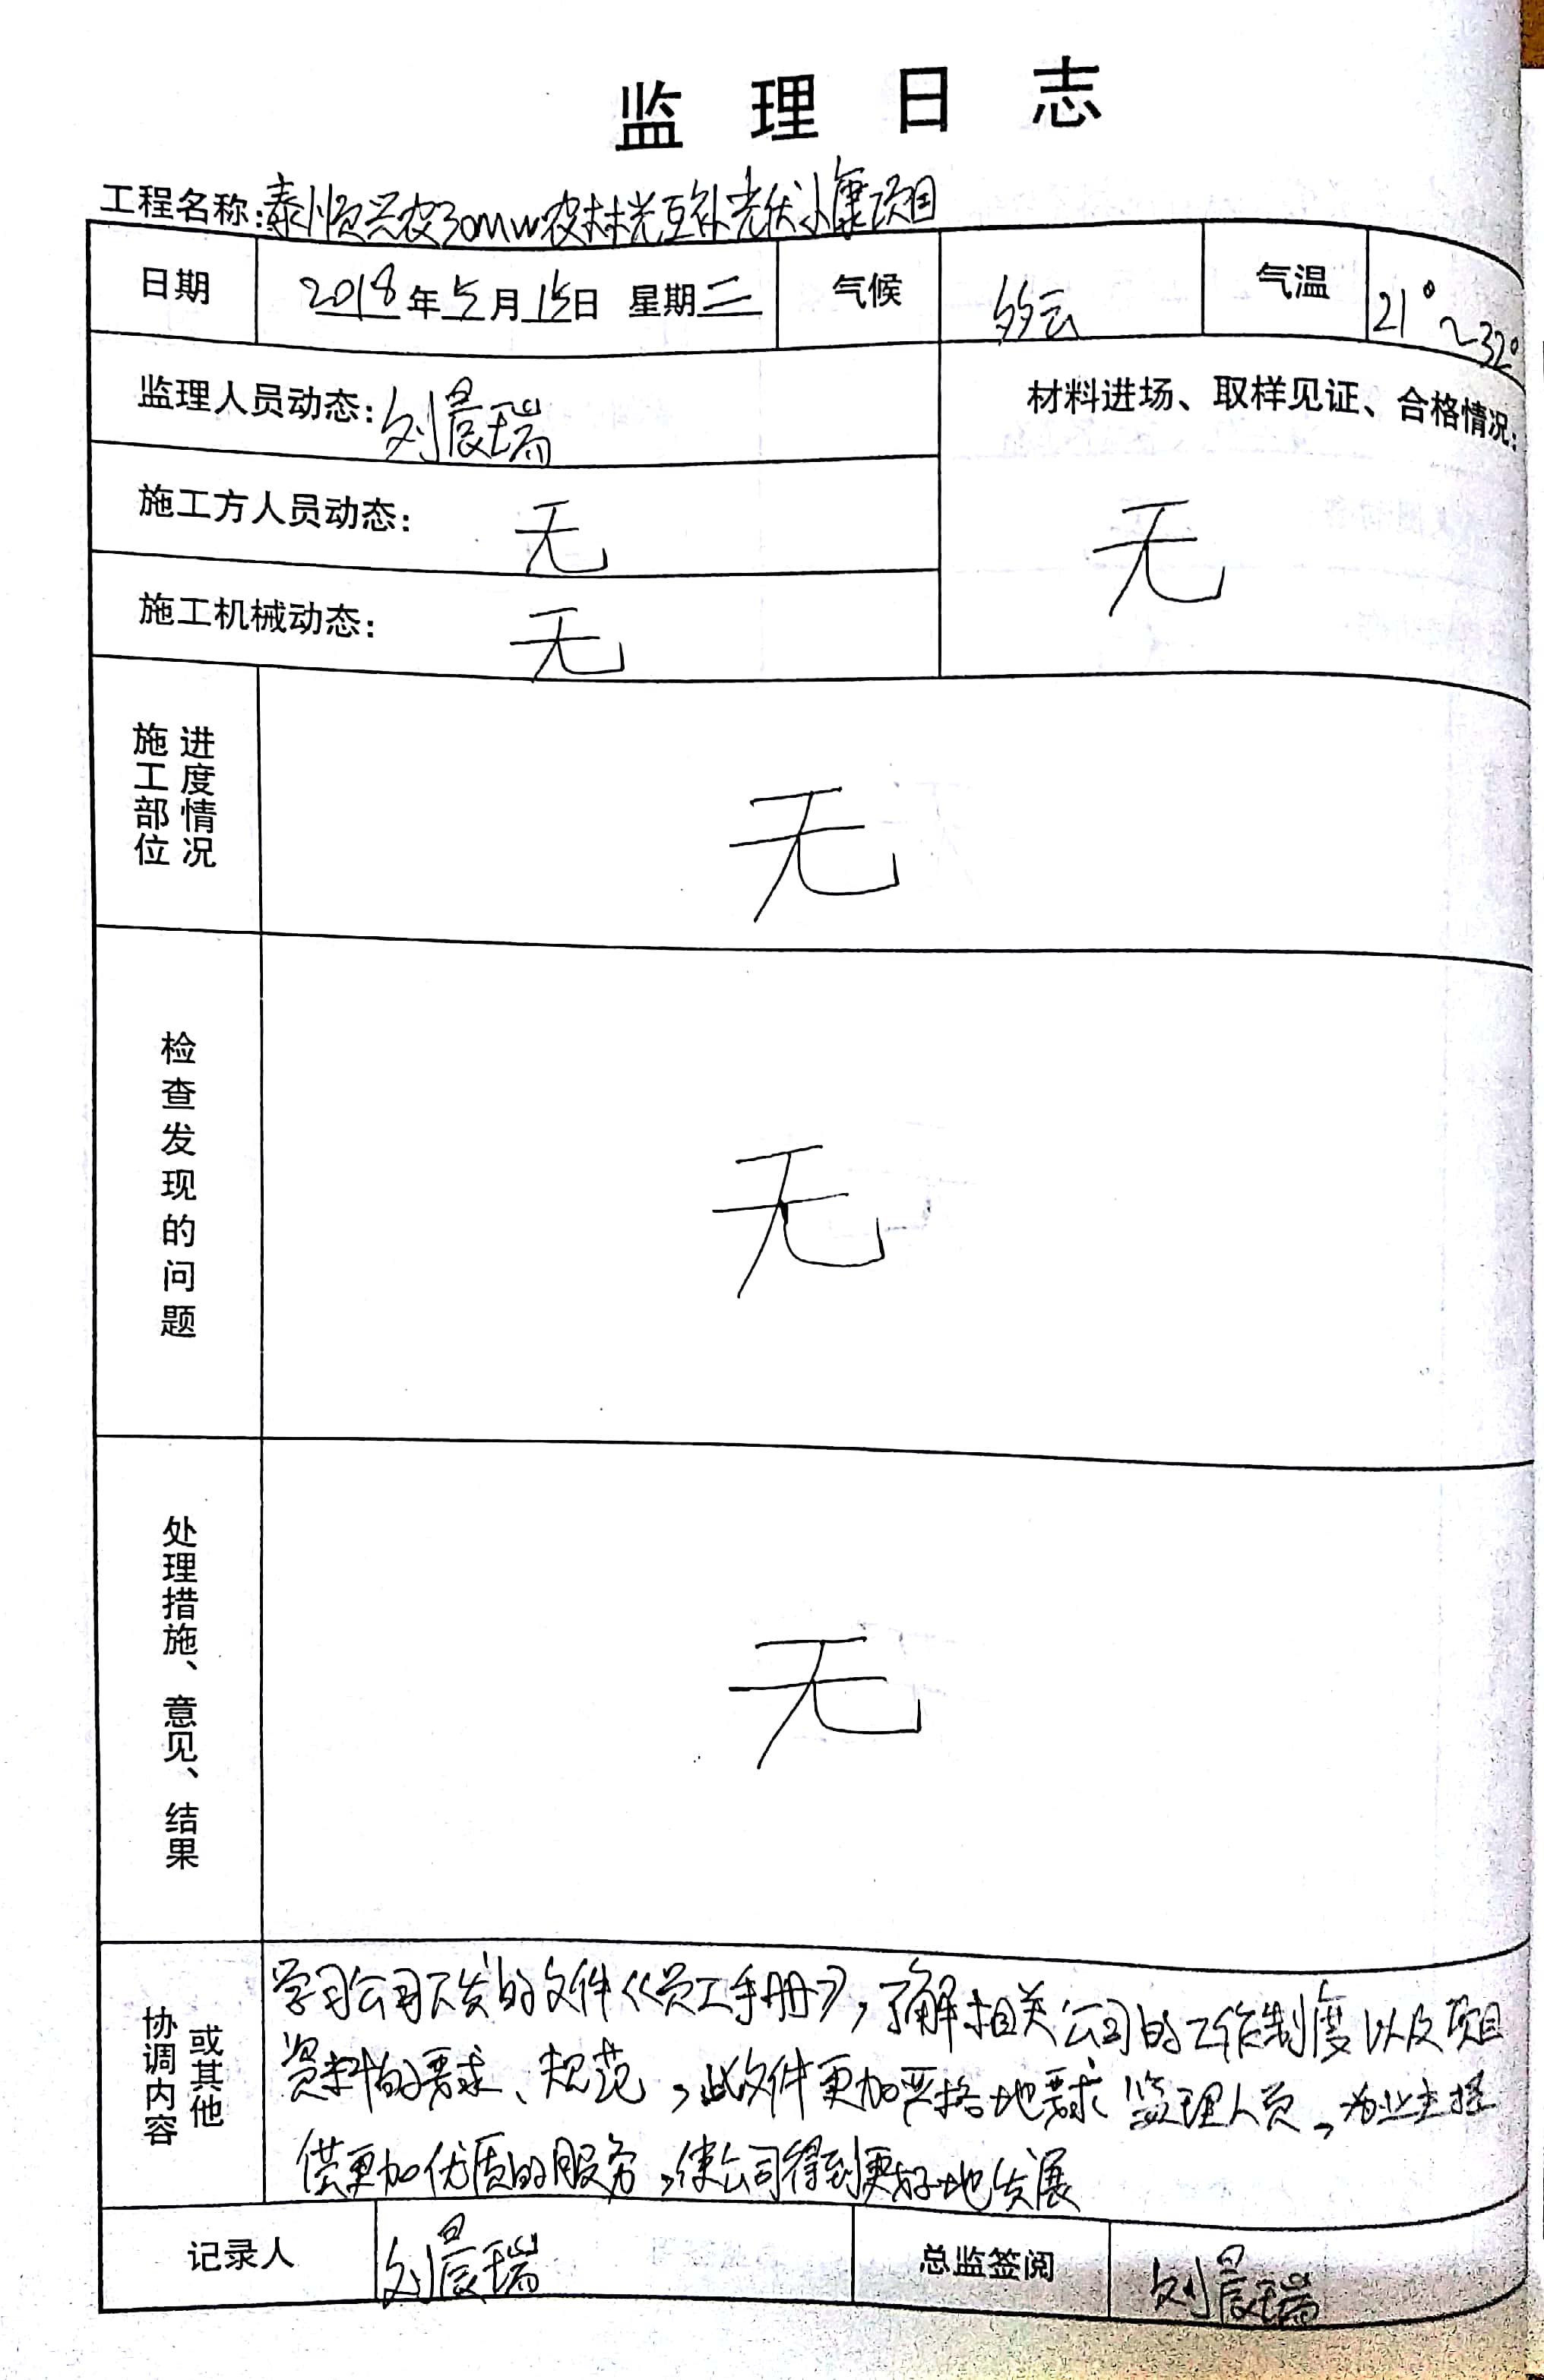 监理日志
工程名称:泰顺兴农30MW农林光互补光伏小康项目
日期 2018年5月15日 星期二 气候 多云 气温 21°~32°
监理人员动态:刘晨瑞
材料进场、取样见证、合格情况:
无
施工方人员动态: 无
施工机械动态: 无
施工部位
进度情况
无
检查发现的问题
无
处理措施、意见、结果
无
协调内容
或其他
学习公司下发的文件《员工手册》,了解相关公司的工作制度以及项目
资料的要求、规范,此文件更加严格地要求监理人员,为业主提
供更加优质的服务,使公司得到更好地发展
记录人 刘晨瑞 总监签阅 刘晨瑞